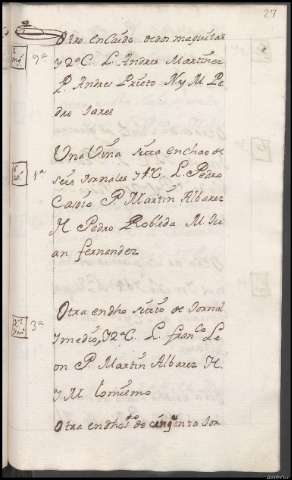 27
Otro en Caído de dos maquilas
2ª y 2ª C. L. Andres Martinez
P. Andres Prieto N. y M. Pe
dro Jares
Una Viña sita en Chao de
1ª seis Jornales y M. L. Pedro
Calvo P. Martin Albarez
N. Pedro Robleda M. Ju
an fernandez
Otra en dho sitio de Jornal
3ª y medio, y 2ª C. L. franco Le
on P. Martin Albarez N.
y M. lo mismo
Otra en dho so de cinquenta Jor